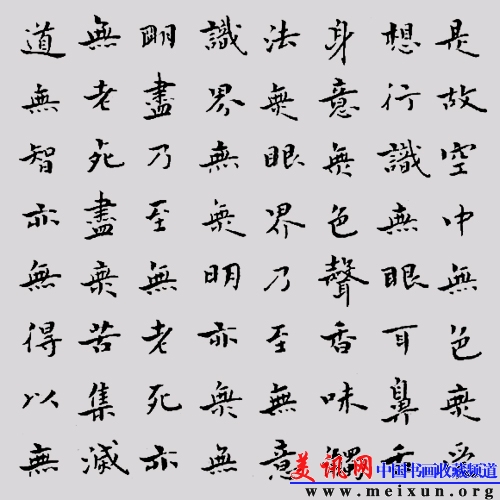 是故空中無色無受
想行識無眼耳鼻舌
身意無色聲香味觸
法無眼界乃至無意
識界無無明亦無無
明盡乃至無老死亦
無老死盡無苦集滅
道無智亦無得以無
美讯网 中国书画收藏频道
www.meixun.org